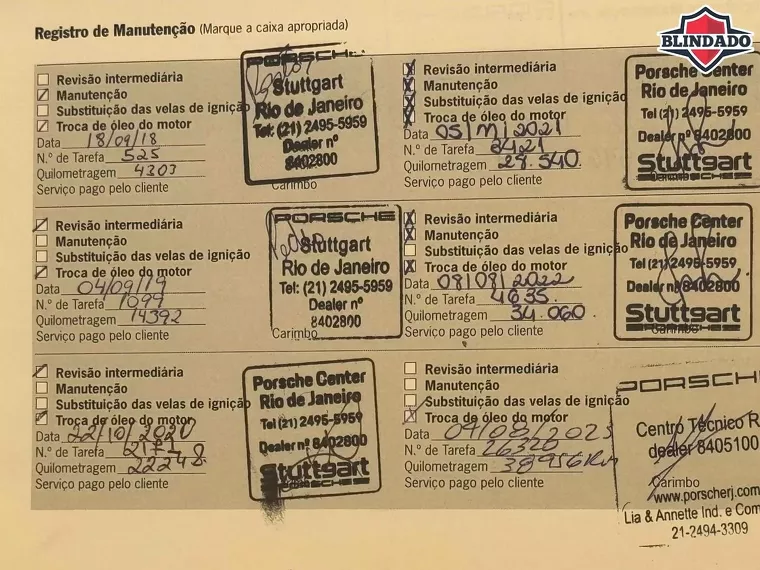 Registro de Manutenção (Marque a caixa apropriada)
BLINDADO
Revisão intermediária
Manutenção
Substituição das velas de ignição
Troca de óleo do motor
Data 18/09/18
N.º de Tarefa 525
Quilometragem 4303
Serviço pago pelo cliente
Carimbo
PORSCHE
Stuttgart
Rio de Janeiro
Tel: (21) 2495-5959
Dealer nº
8402800
Revisão intermediária
Manutenção
Substituição das velas de ignição
Troca de óleo do motor
Data 05/11/2021
N.º de Tarefa 3421
Quilometragem 28.540
Serviço pago pelo cliente
Porsche Center
Rio de Janeiro
Tel (21) 2495-5959
Dealer nº 8402800
Stuttgart
PORSCHE
Revisão intermediária
Manutenção
Substituição das velas de ignição
Troca de óleo do motor
Data 04/09/19
N.º de Tarefa 1099
Quilometragem 14392
Serviço pago pelo cliente
Carimbo
PORSCHE
Stuttgart
Rio de Janeiro
Tel: (21) 2495-5959
Dealer nº
8402800
Revisão intermediária
Manutenção
Substituição das velas de ignição
Troca de óleo do motor
Data 08/08/2022
N.º de Tarefa 4635
Quilometragem 34.060
Serviço pago pelo cliente
Porsche Center
Rio de Janeiro
Tel (21) 2495-5959
Dealer nº 8402800
Stuttgart
Carimbo
Revisão intermediária
Manutenção
Substituição das velas de ignição
Troca de óleo do motor
Data 22/10/2020
N.º de Tarefa
Quilometragem 22248
Serviço pago pelo cliente
Porsche Center
Rio de Janeiro
Tel (21) 2495-5959
Dealer nº 8402800
Stuttgart
PORSCHE
Revisão intermediária
Manutenção
Substituição das velas de ignição
Troca de óleo do motor
Data 04/08/2023
N.º de Tarefa 26320
Quilometragem 38956Km
Serviço pago pelo cliente
PORSCHE
Centro Técnico R
dealer 8405100
Carimbo
www.porscherj.com
Lia & Annette Ind. e Com
21-2494-3309